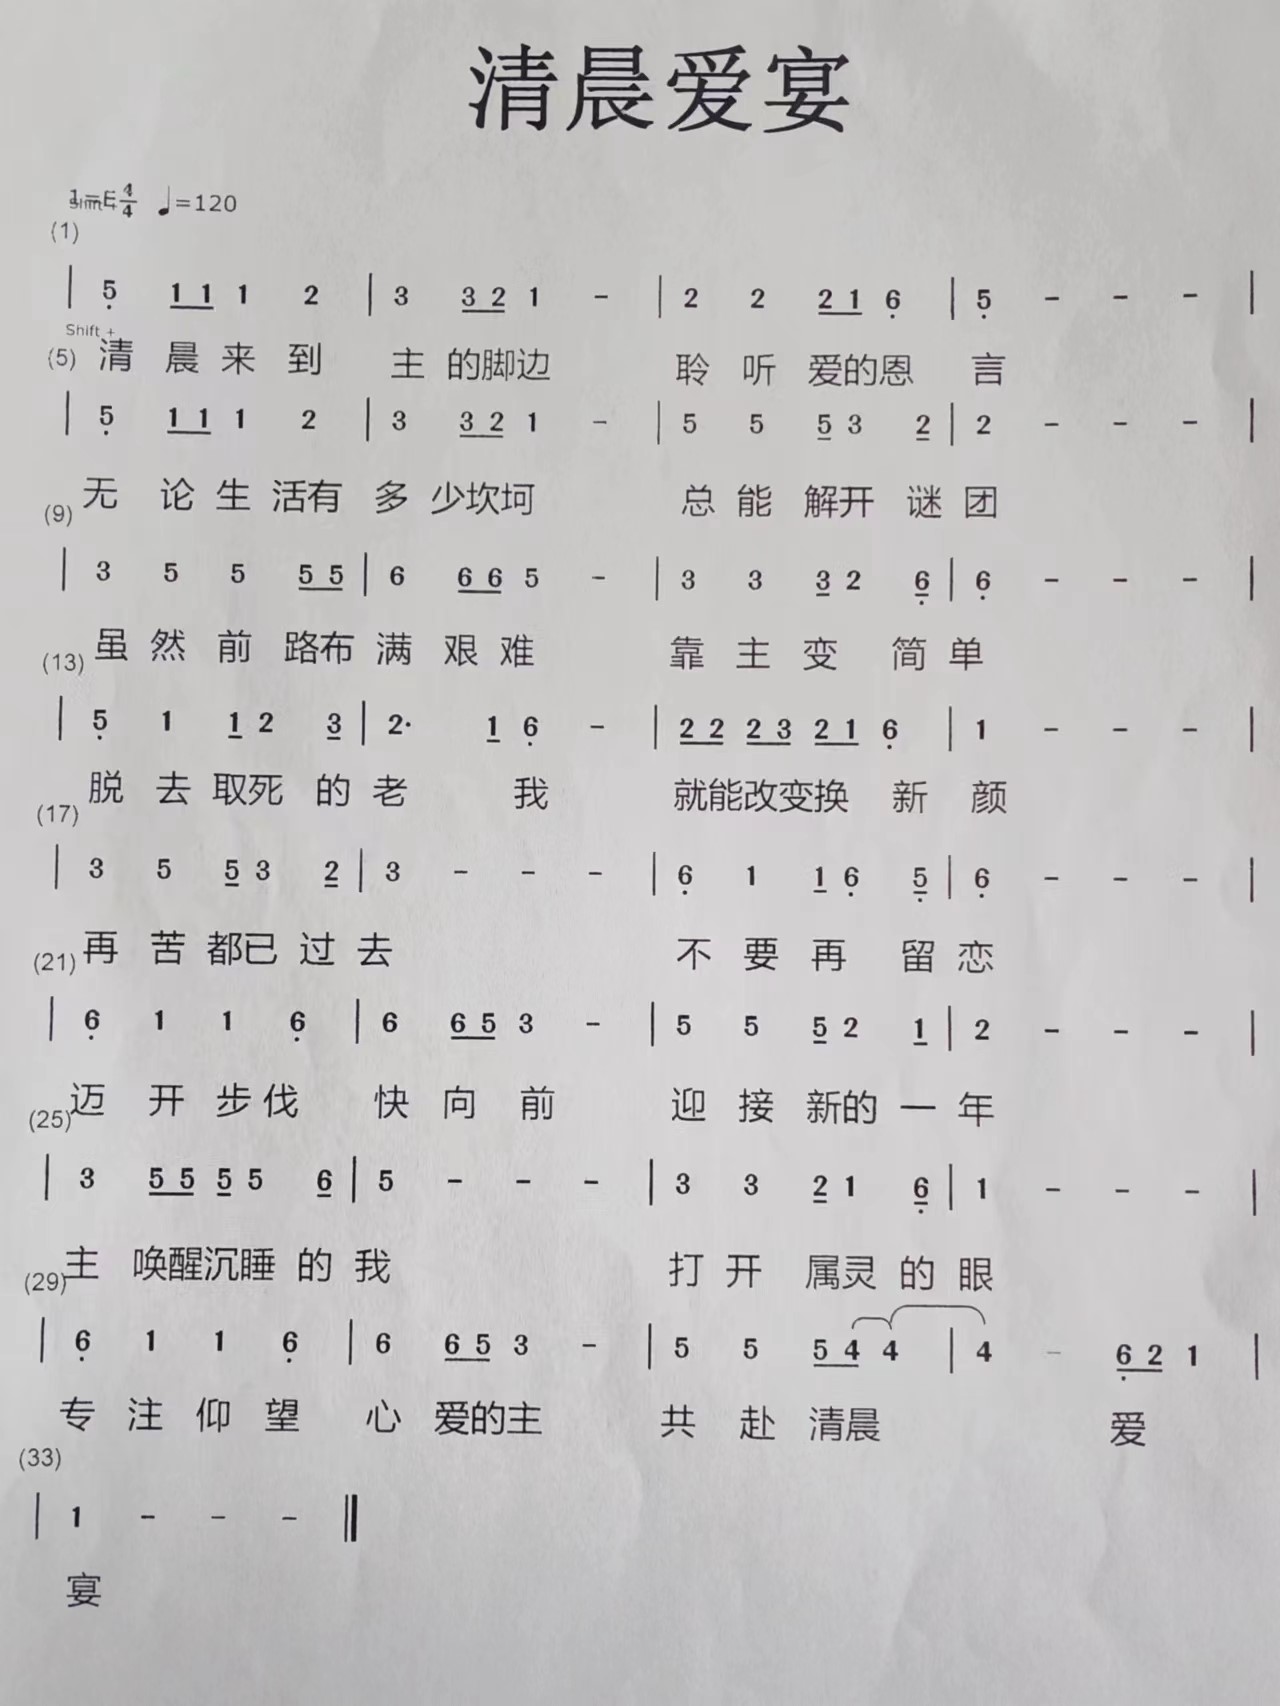 清晨爱宴
1=E 4/4 ♩=120
(1)
| 5̣ 1 1 1 2 | 3 3 2 1 - | 2 2 2 1 6̣ | 5̣ - - - |
Shift +
(5) 清 晨 来 到 主 的脚边 聆 听 爱的恩 言
| 5̣ 1 1 1 2 | 3 3 2 1 - | 5 5 5 3 2 | 2 - - - |
(9) 无 论 生 活有 多 少坎坷 总 能 解开 谜 团
| 3 5 5 5 5 | 6 6 6 5 - | 3 3 3 2 6̣ | 6̣ - - - |
(13) 虽 然 前 路布 满 艰 难 靠 主 变 简 单
| 5̣ 1 1 2 3 | 2· 1 6̣ - | 2 2 2 3 2 1 6̣ | 1 - - - |
(17) 脱 去 取死 的 老 我 就能改变换 新 颜
| 3 5 5 3 2 | 3 - - - | 6̣ 1 1 6̣ 5̣ | 6̣ - - - |
(21) 再 苦 都已 过 去 不 要 再 留 恋
| 6̣ 1 1 6̣ | 6 6 5 3 - | 5 5 5 2 1 | 2 - - - |
(25) 迈 开 步 伐 快 向 前 迎 接 新的 一 年
| 3 5 5 5 5 6 | 5 - - - | 3 3 2 1 6̣ | 1 - - - |
(29) 主 唤醒沉睡 的 我 打 开 属灵 的 眼
| 6̣ 1 1 6̣ | 6 6 5 3 - | 5 5 5 4 4 | 4 - 6̣ 2 1 |
专 注 仰 望 心 爱的主 共 赴 清晨 爱
(33)
| 1 - - - ‖
宴